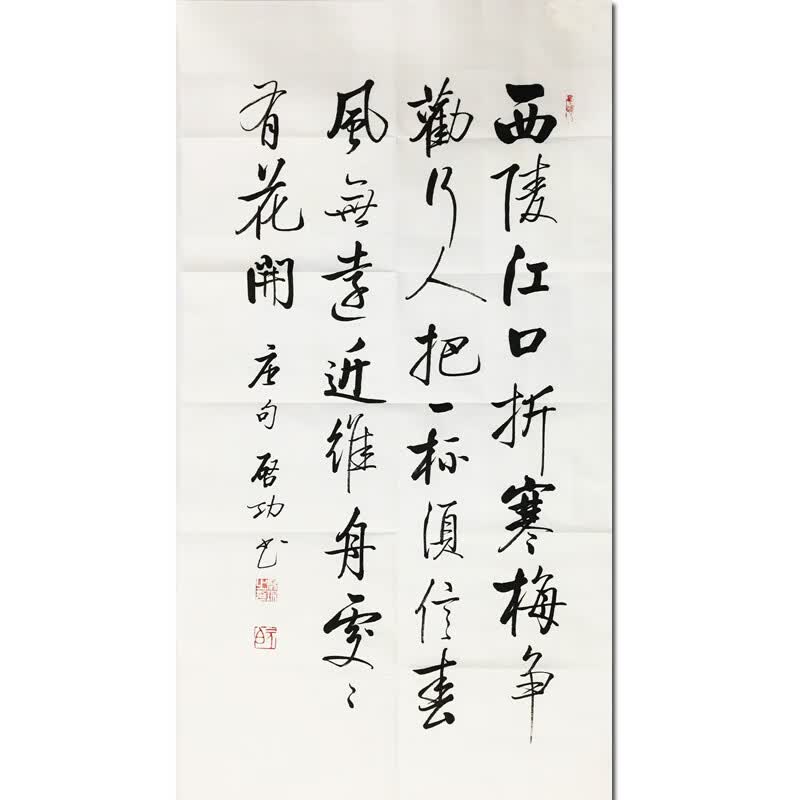 西陵江口折寒梅争
勸行人把一杯須信春
風無遠近維舟處〻
有花開 唐句 啓功书